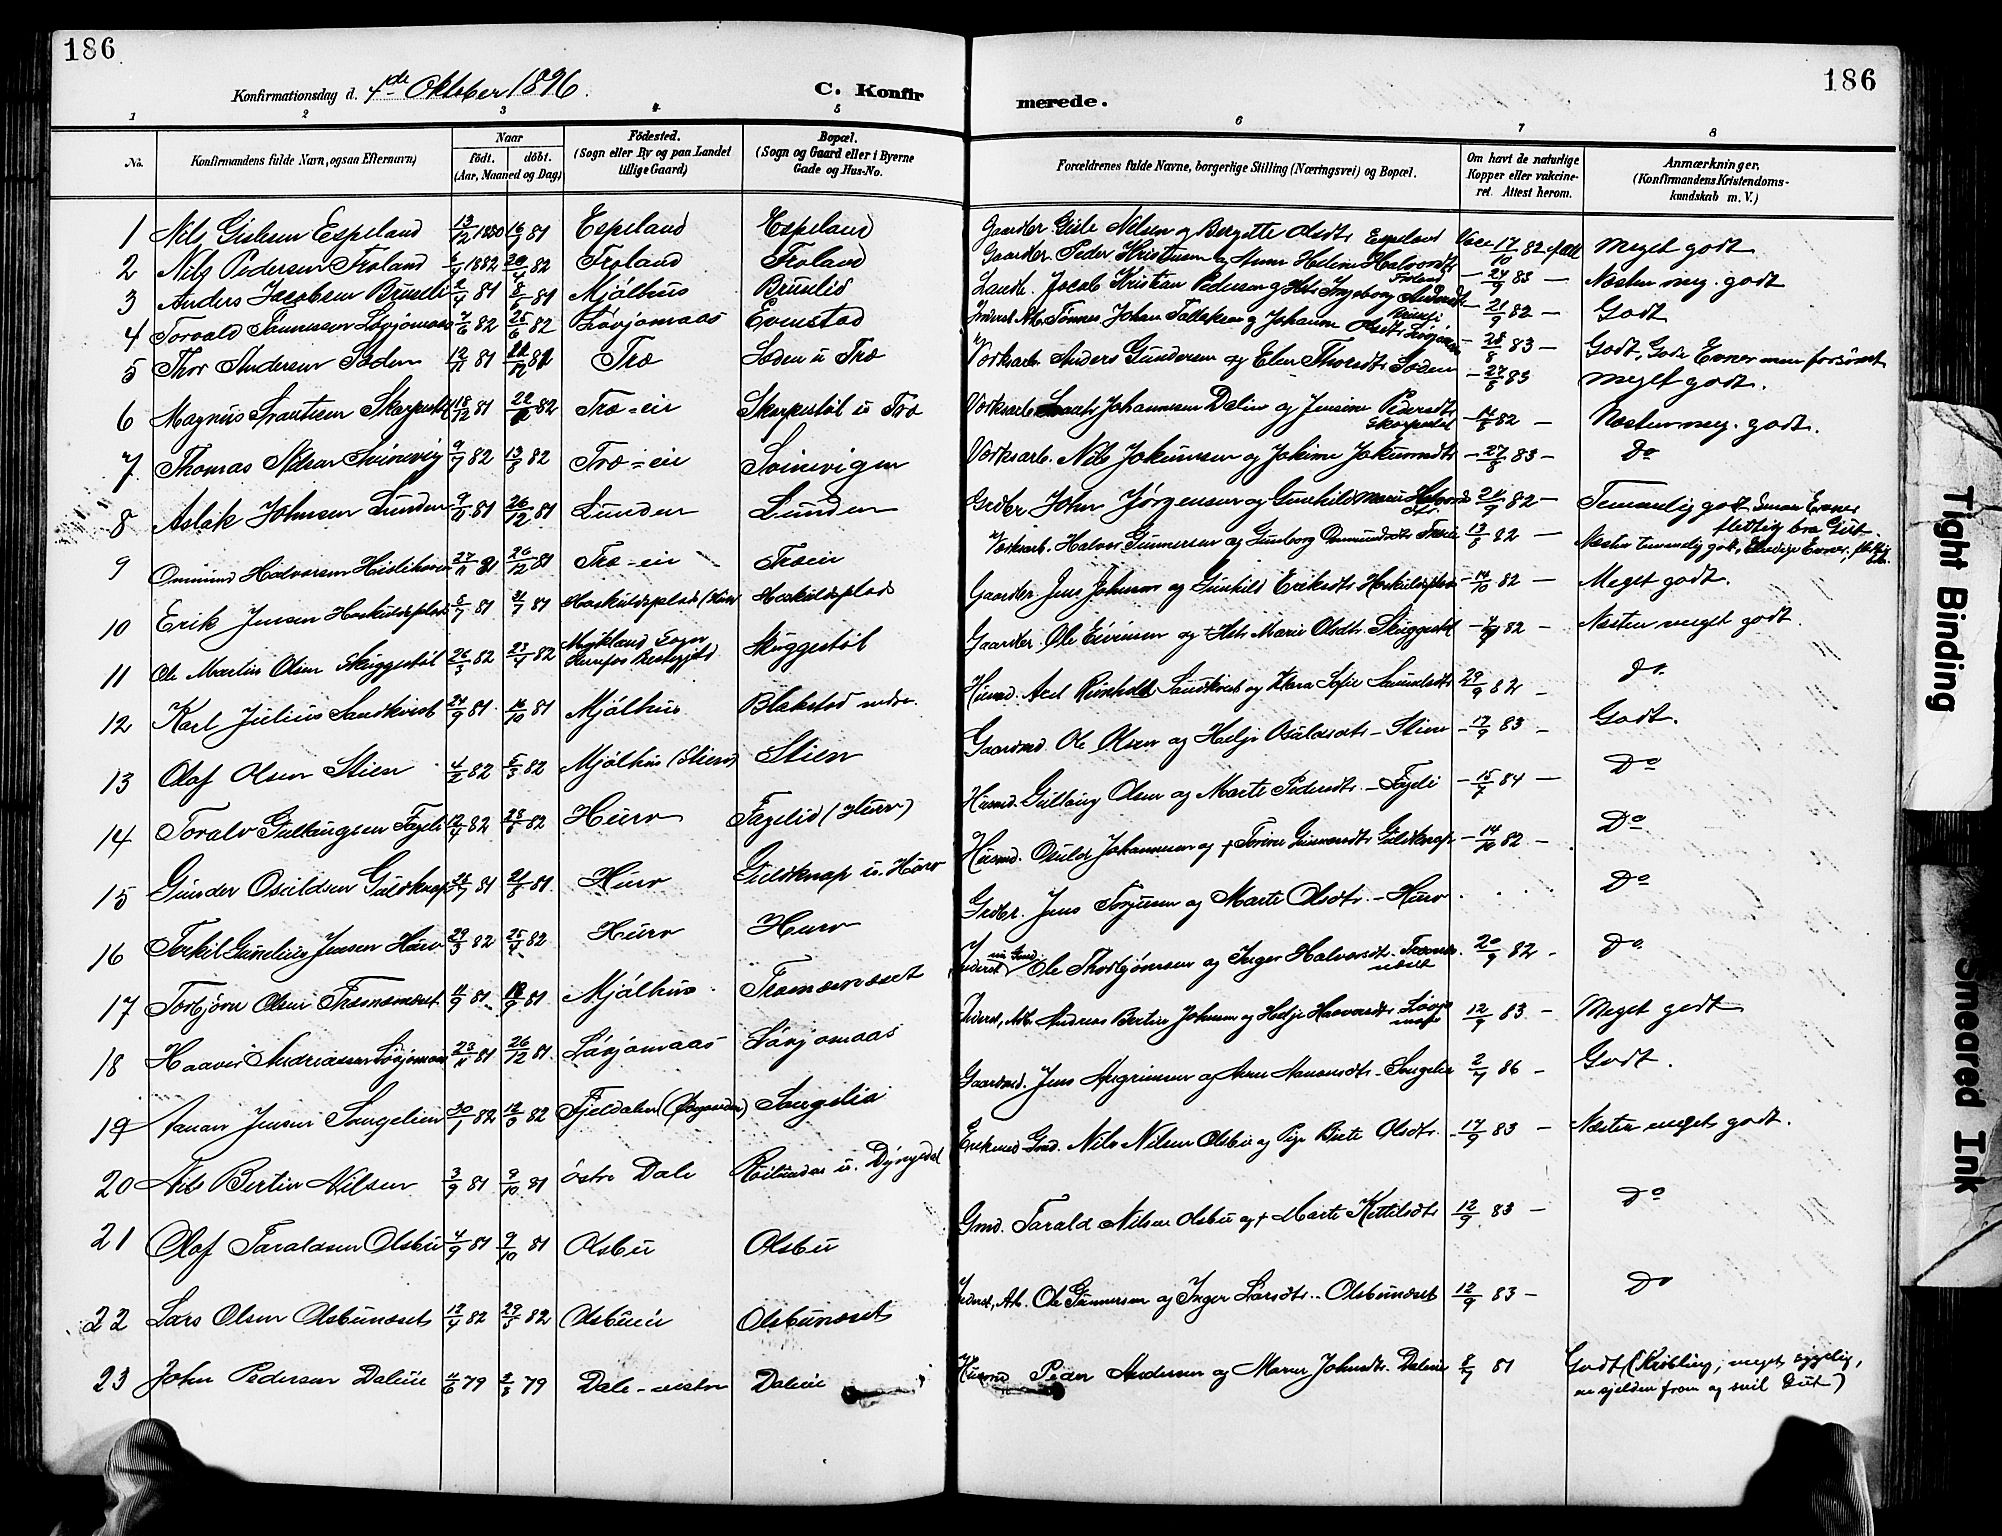 186
186
Konfirmationsdag d. 4de Oktober 1896.
C. Konfir
merede.
1 2 3 4 5 6 7 8
No.
Konfirmandens fulde Navn, ogsaa Efternavn)
Naar
födt. döbt.
(Aar, Maaned og Dag)
Födested.
(Sogn eller By og paa Landet
tillige Gaard)
Bopæl.
(Sogn og Gaard eller i Byerne
Gade og Hus-No.
Forældrenes fulde Navne, borgerlige Stilling (Næringsvei) og Bopæl.
Om havt de naturlige
Kopper eller vakcine-
ret. Attest herom.
Anmærkninger.
(Konfirmandens Kristendoms-
kundskab m. V.)
1 Nils Gislesen Espeland 13/12 1880 16/1 81 Espeland Espeland Gaardbr. Gisle Nilsen og Bergette Olsdtr Espeland Vacc 17/10 82 Meget godt
2 Nils Pedersen Froland 1882 82 Froland Froland Gaardbr. Peder Kristensen og Anne Helene Halvorsdtr Froland 24/9 83 — Næsten meg. godt
3 Anders Jacobsen Bruseli 2/4 81 8/6 81 Mjålhus Bruslid Jacob Kristian Pedersen og Ingeborg Andersdtr Bruseli 21/9 82 — Godt
4 Torvald Tønnessen Løvjomaas 7/6 82 25/6 82 Løvjomaas Evenstad Inderst, Arb. Tønnes Johan Tallaksen og Johanne Olsdtr Løvjom 28/8 83 — Godt, Gode Evner men forsømt
5 Thor Andersen Soden 12/11 81 82 Træ Soden u Træ Værksarb. Anders Gundersen og Elen Thorsdtr Soden 27/8 83 Meget godt.
6 Magnus Skarpestøl 18/12 81 82 Træ-eie Skarpestøl u Træ Værksarb. Johannesen Dalen og Jensine Pedersdtr Skarpestøl 14/8 82 — Næsten meg. godt.
7 Thomas Nilsen Svinevig 9/7 82 13/8 82 Træ-eie Svinevigen Værksarb. Nils Jokumsen og Jokine Jokumsdtr 27/8 83 — Do
8 Aslak Johnsen Lunden 9/11 81 26/12 81 Lunden Lunden Grdbr John Jørgensen og Gunhild Marie Halvorsdtr 21/9 82 — Temmelig godt, Smaa Evner flittig bra Gut
9 Ommund Halvorsen 27/11 81 26/12 81 Træ-eie Træeie Værksarb. Halvor Gunnersen og Gunborg Ommundsdtr Træeie 13/8 82 — Næsten temmelig godt, Evner, flittig
10 Erik Jensen Haskuldsplads 5/7 81 31/7 81 Haskuldsplads Haskuldsplads Gaardbr. Jens Johnsen og Gunhild Eriksdtr Haskuldsplads 14/10 82 — Meget godt.
11 Ole Martin Olsen Skuggestøl 26/3 82 23/4 82 Mykland Sogn Skuggestøl Gaardbr. Ole Eivinsen og Marie Olsdtr Skuggestøl 82 — Næsten meget godt.
12 Karl Julius Sandkvist 24/9 81 16/10 81 Mjålhus Blakstad nedre. Husmd. Axel Reinhold Sandkvist og Klara Sofie Samuelsdtr 29/9 82 — Do.
13 Olaf Olsen Stien 4/2 82 5/3 82 Mjålhus (Stien) Stien Gaardmd. Ole Olsen og Helje Osuldsdtr – Stien 17/9 83 — Godt.
14 Toralv Gultingsen Fageli 12/4 82 28/5 82 Hurv Fagelid (Hurv) Husmd. Gulting Olsen og Marte Pedersdtr. – Fageli 15/7 84 — Do
15 Gunder Osuldsen Guldknap 81 21/8 81. Hurv Guldknap u. Hurv Husmd. Osuld Johannesen og † Torine Gundersdtr Guldknap 14/10 82 — Do
16 Torkil Gunelius Jensen Hurv 29/3 82 25/4 82 Hurv Hurv Grdbr. Jens Torjusen og Marte Olsdtr. – Hurv . . . . Do
17 Torbjørn Olsen Tramenæset 11/9 81. 18/9 81 Mjålhus. Tramenæset Inderst Ole Thorbjørnsen og Inger Halvorsdtr. Tramenæset 20/9 82 — Do.
18 Haaver Andreassen Løvjomaas 23/11 81 26/12 81 Løvjomaas Løvjomaas Inderst, Arb. Andreas Bertin Johnsen og Helje Haaversdtr Løvjomaas 12/9 83 — Meget godt
19 Aanan Jensen Songelien 30/1 82 12/3 82 Fjeldalen Songelia Gaardmd. Jens Asgrimsen og Anne Aanonsdtr – Songelie 2/7 86 — Godt.
20 Nils Bertin Nilsen 3/9 81 9/10 81 østre Dale Røilunden u. Enkemd Gmd. Nils Nilsen Olsbu og Pige Birte Olsdtr. 17/9 83 — Næsten meget godt.
21 Olaf Taraldsen Olsbu 4/9 81 9/10 81 Olsbu Olsbu Gmd. Tarald Nilsen Olsbu og † Marte Kittilsdtr 12/9 83 — Do
22 Lars Olsen Olsbunæset 12/4 82 29/5 82 Olsbueie Olsbunæset Inderst, Arb. Ole Gunnersen og Inger Larsdtr.. Olsbunæset 12/9 83 — Do
23 John Pedersen Daleeie 79 79 Dale-vestre Daleeie Husmd Peder Andersen og Maren Johnsdtr. Daleeie 8/7 81 Godt (Krøbling, meget sygelig, en sjelden from og snil Gut)
Tight Binding
Smeared Ink